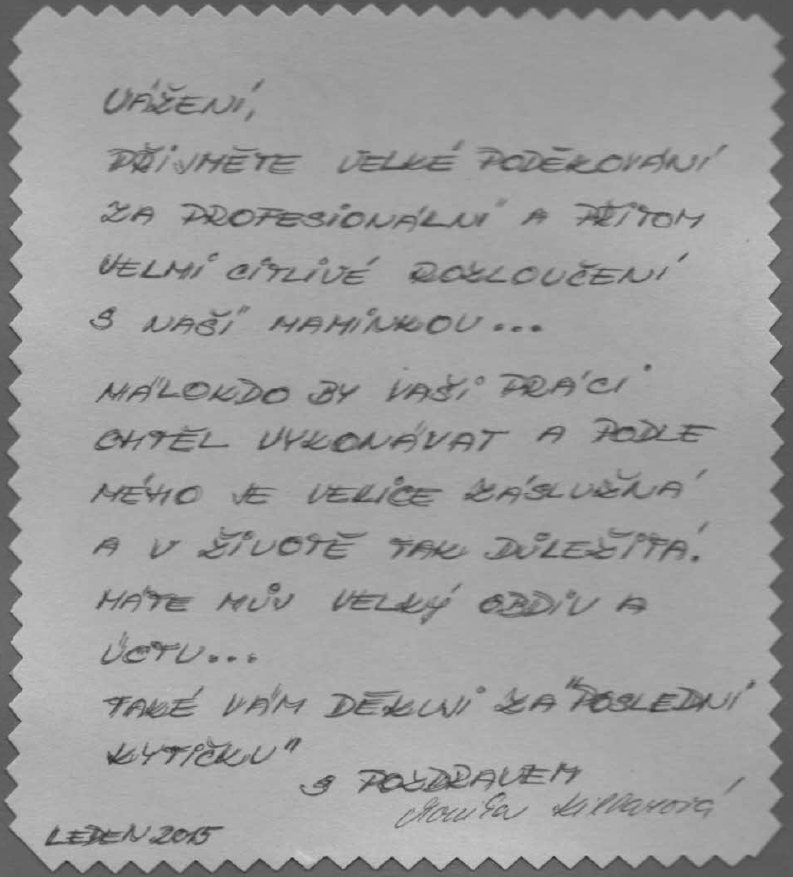 VÁŽENÍ,
PŘIJMĚTE VELKÉ PODĚKOVÁNÍ
ZA PROFESIONÁLNÍ A PŘITOM
VELMI CITLIVÉ ROZLOUČENÍ
S NAŠÍ MAMINKOU...
MÁLOKDO BY VAŠI PRÁCI
CHTĚL VYKONÁVAT A PODLE
MÉHO JE VELICE ZÁSLUŽNÁ
A V ŽIVOTĚ TAK DŮLEŽITÁ.
MÁTE MŮJ VELKÝ OBDIV A
ÚCTU...
TAKÉ VÁM DĚKUJI ZA "POSLEDNÍ
KYTIČKU"
S POZDRAVEM
LEDEN 2015